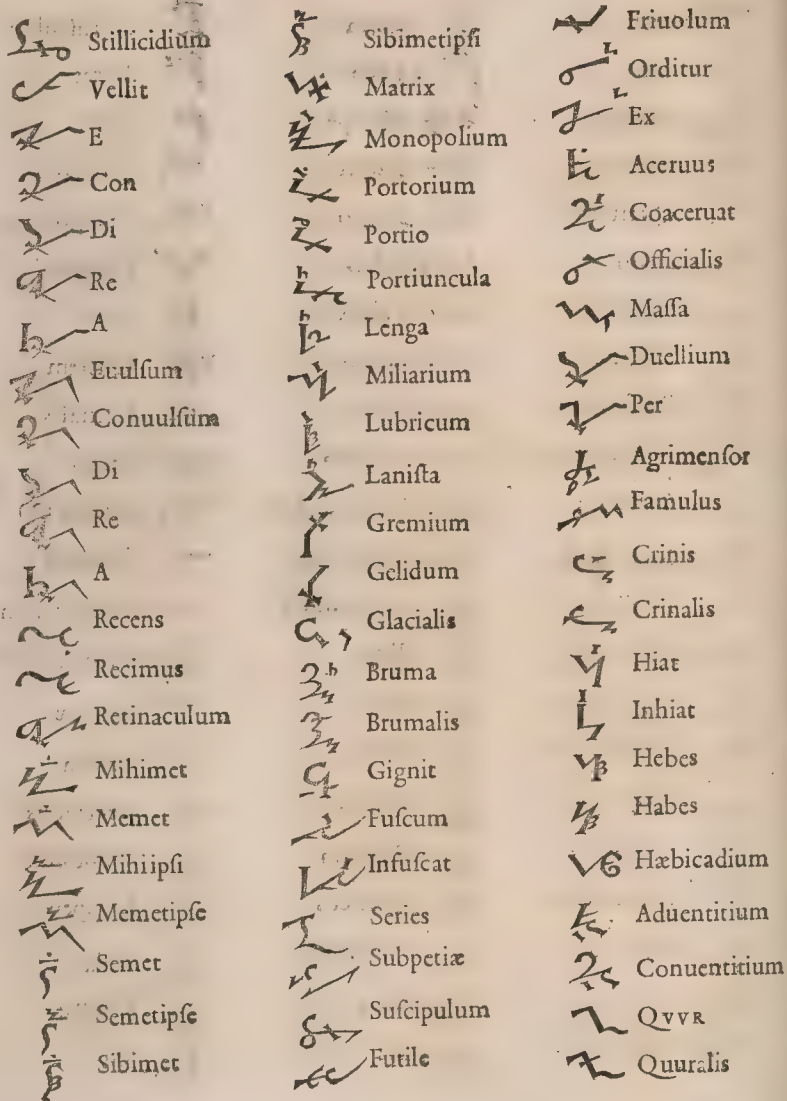 Stillicidium
Vellit
E
Con
Di
Re
A
Euulſum
Conuulſum
Di
Re
A
Recens
Recimus
Retinaculum
Mihimet
Memet
Mihi ipſi
Memetipſe
Semet
Semetipſe
Sibimet
Sibimetipſi
Matrix
Monopolium
Portorium
Portio
Portiuncula
Lenga
Miliarium
Lubricum
Laniſta
Gremium
Gelidum
Glacialis
Bruma
Brumalis
Gignit
Fuſcum
Infuſcat
Series
Subpetiæ
Suſcipulum
Futile
Friuolum
Orditur
Ex
Aceruus
Coaceruat
Officialis
Maſſa
Duellium
Per
Agrimenſor
Famulus
Crinis
Crinalis
Hiat
Inhiat
Hebes
Habes
Hæbicadium
Aduentitium
Conuentitium
QVVR
Quuralis